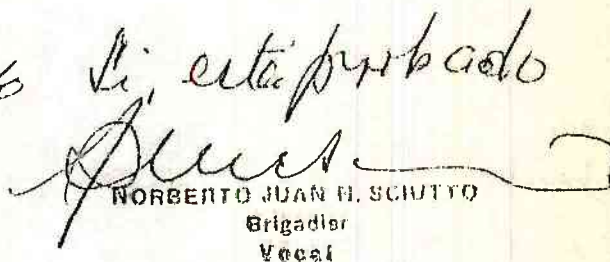 Si, está probado
NORBERTO JUAN M. SCIUTTO
Brigadier
Vocal